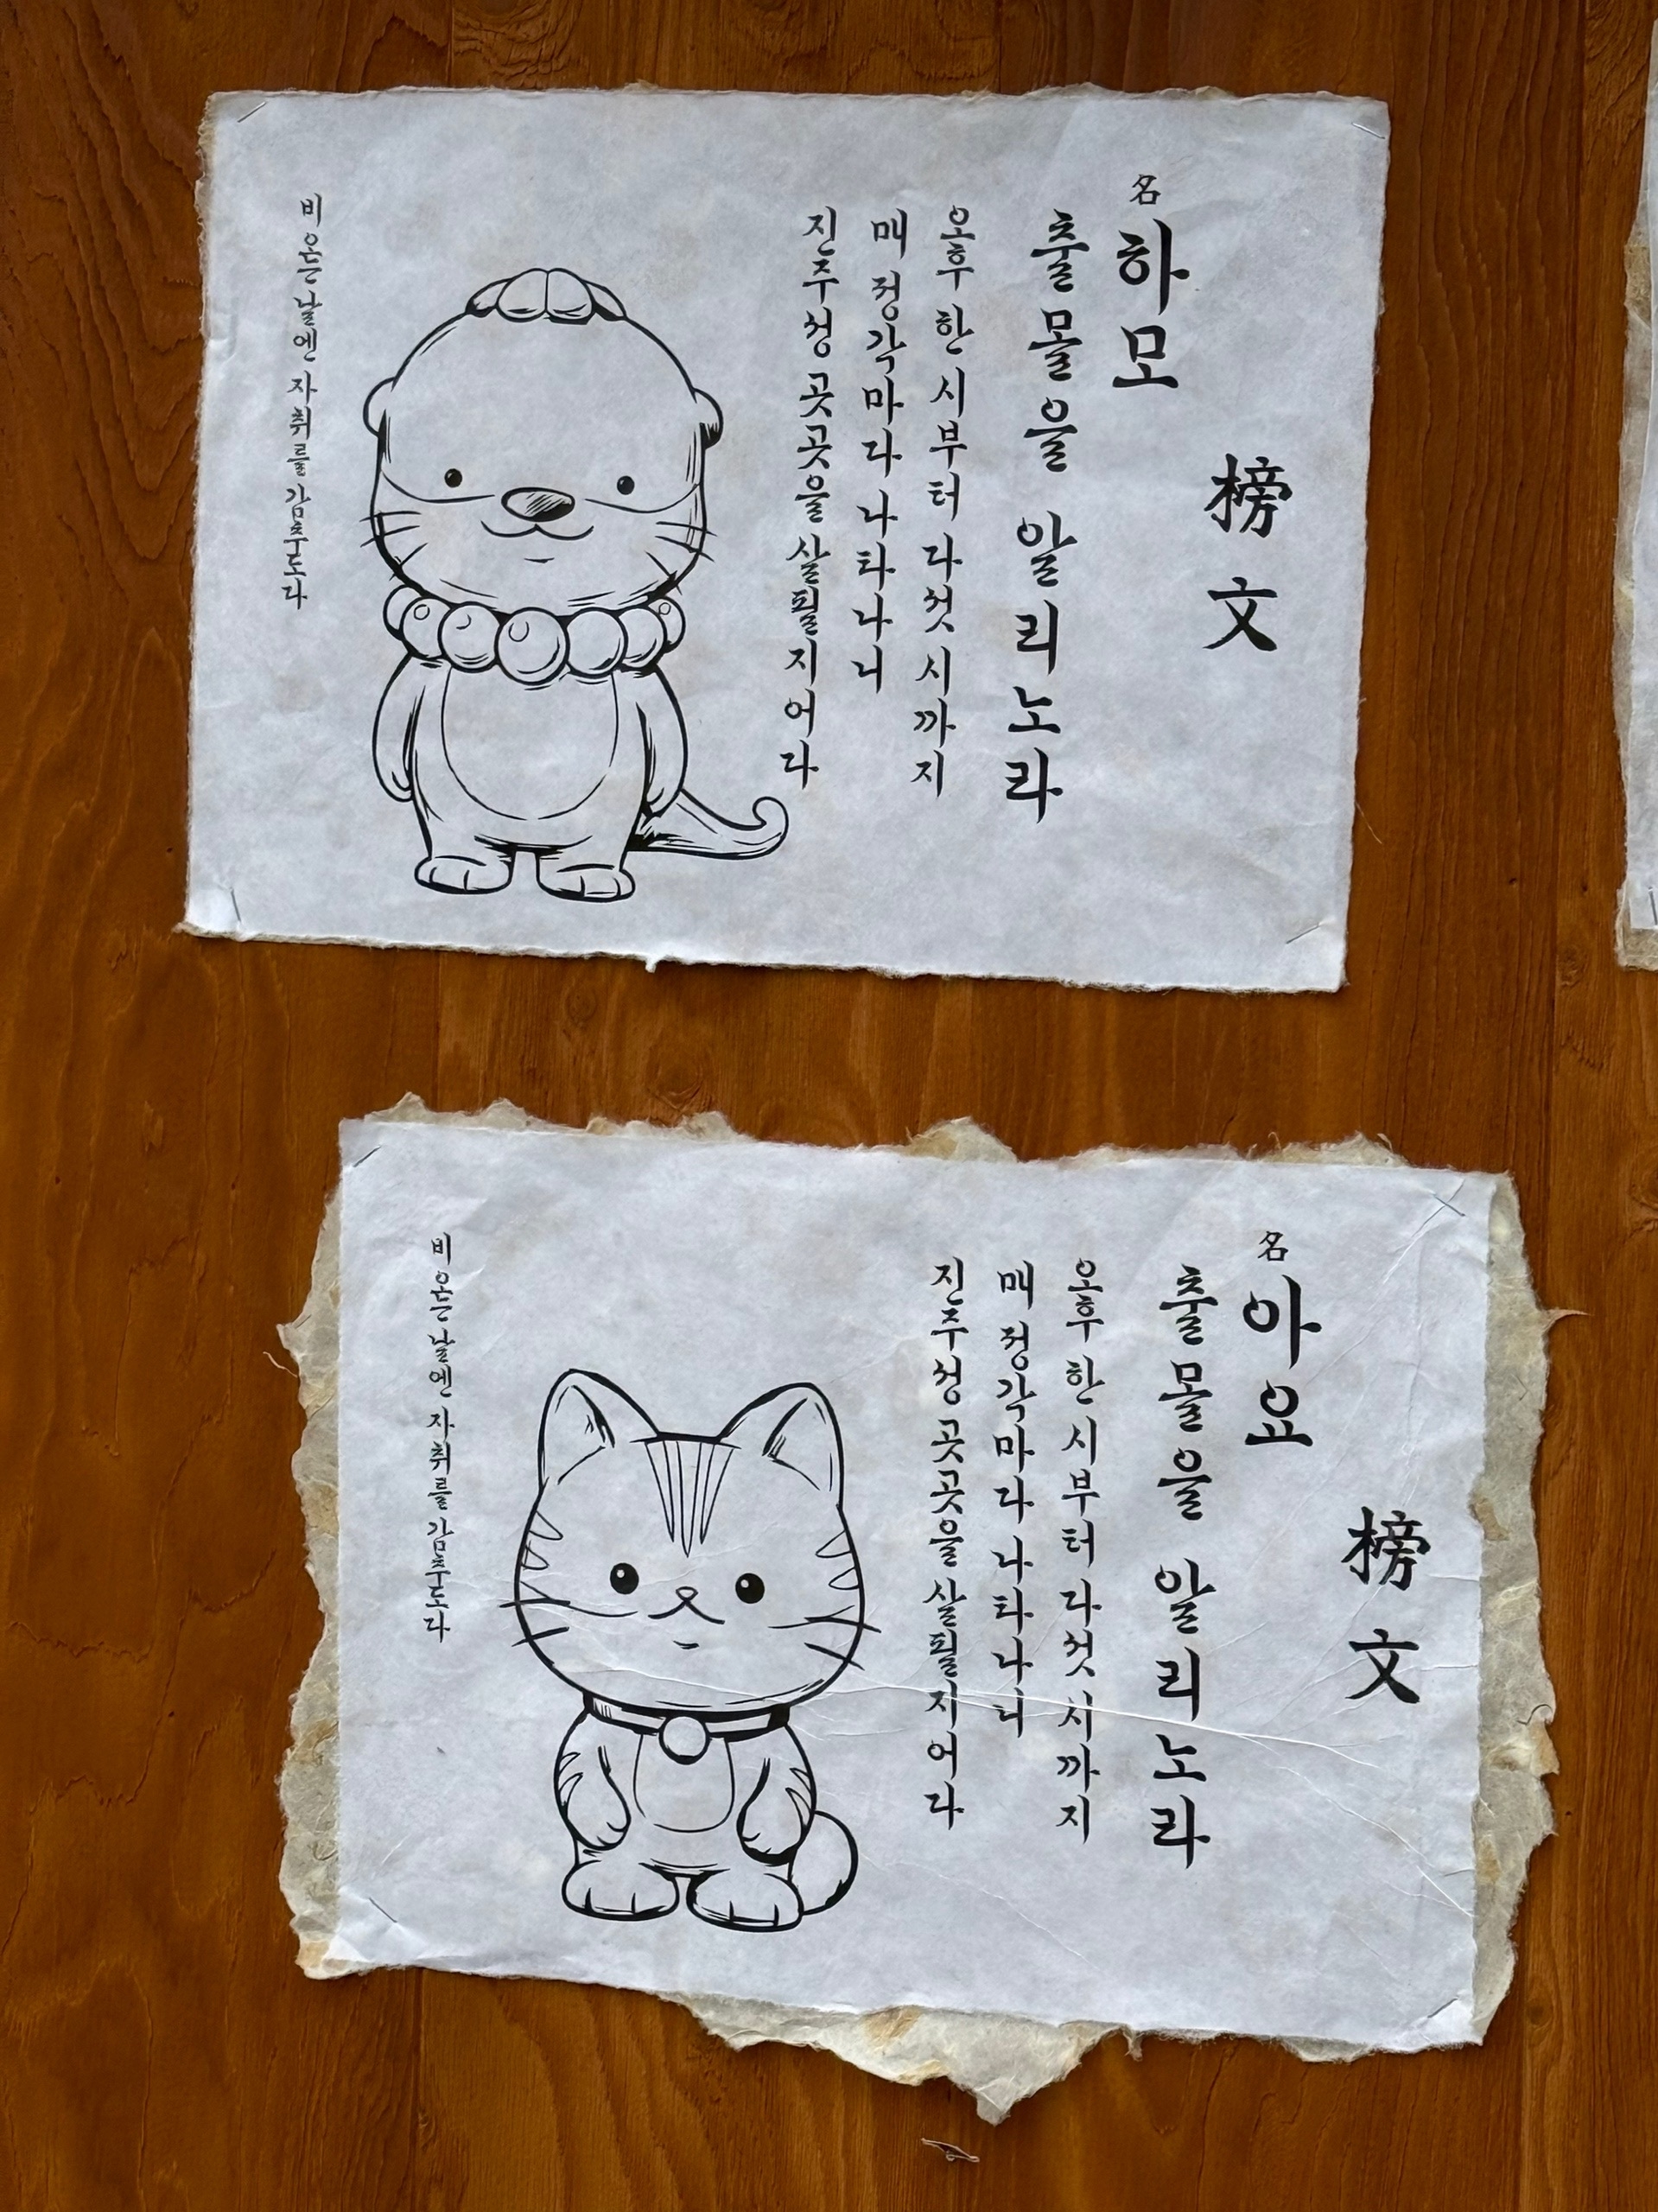 榜文
名 하모
출몰을 알리노라
오후 한 시부터 다섯 시까지
매 정각마다 나타나니
진주성 곳곳을 살필지어다
비 오는 날엔 자취를 감추도다
榜文
名 아요
출몰을 알리노라
오후 한 시부터 다섯 시까지
매 정각마다 나타나니
진주성 곳곳을 살필지어다
비 오는 날엔 자취를 감추도다